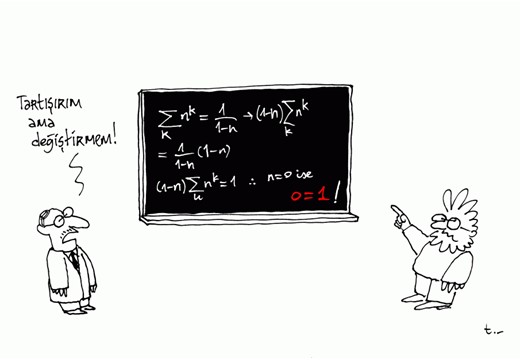 Tartışırım
ama
değiştirmem!
∑ₖ nᵏ = 1/(1-n) → (1-n) ∑ₖ nᵏ
= 1/(1-n) (1-n)
(1-n) ∑ₖ nᵏ = 1 ∴ n=0 ise
0=1!
t.-